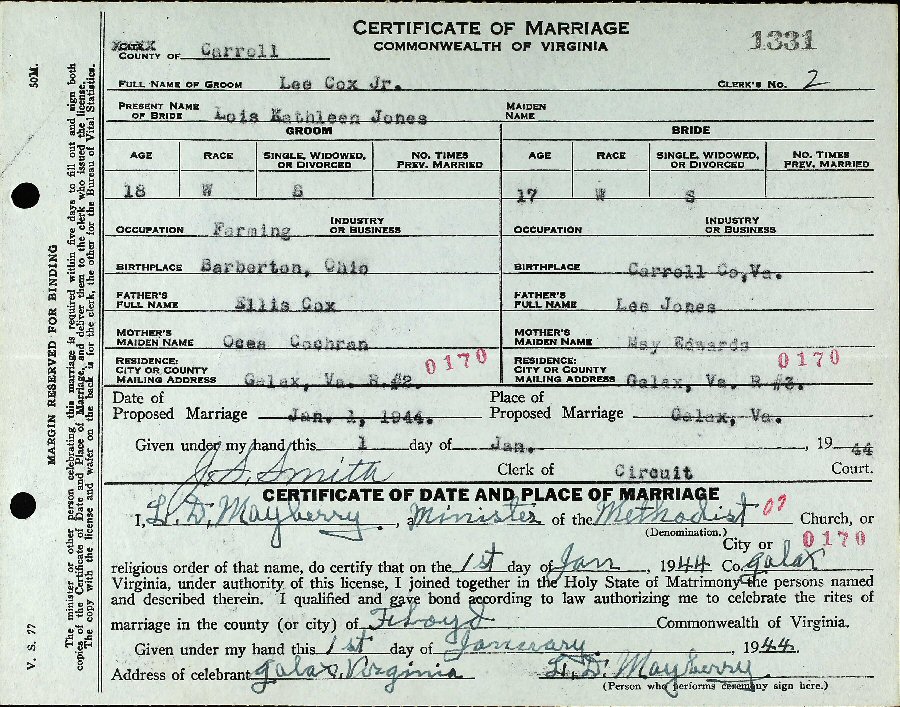 CERTIFICATE OF MARRIAGE
COMMONWEALTH OF VIRGINIA
1331
COUNTY OF Carroll
FULL NAME OF GROOM Lee Cox Jr. CLERK'S NO. 2
PRESENT NAME OF BRIDE Lois Kathleen Jones MAIDEN NAME
GROOM BRIDE
AGE RACE SINGLE, WIDOWED, OR DIVORCED NO. TIMES PREV. MARRIED AGE RACE SINGLE, WIDOWED, OR DIVORCED NO. TIMES PREV. MARRIED
18 W S 17 W S
OCCUPATION Farming INDUSTRY OR BUSINESS OCCUPATION INDUSTRY OR BUSINESS
BIRTHPLACE Barberton, Ohio BIRTHPLACE Carroll Co,Va.
FATHER'S FULL NAME Ellis Cox FATHER'S FULL NAME Lee Jones
MOTHER'S MAIDEN NAME Ocea Cochran MOTHER'S MAIDEN NAME May Edwards
RESIDENCE: CITY OR COUNTY 0170 RESIDENCE: CITY OR COUNTY 0170
MAILING ADDRESS Galax, Va. R.#2. MAILING ADDRESS Galax, Va. R #3.
Date of Proposed Marriage Jan. 1, 1944. Place of Proposed Marriage Galax, Va.
Given under my hand this 1 day of Jan. , 19 44
J. S. Smith Clerk of Circuit Court.
CERTIFICATE OF DATE AND PLACE OF MARRIAGE
I, L. D. Mayberry, a Minister of the Methodist 07 Church, or
(Denomination.) City or 0170
religious order of that name, do certify that on the 1st day of Jan, 1944 Co. Galax
Virginia, under authority of this license, I joined together in the Holy State of Matrimony the persons named
and described therein. I qualified and gave bond according to law authorizing me to celebrate the rites of
marriage in the county (or city) of Floyd Commonwealth of Virginia.
Given under my hand this 1st day of January, 1944.
Address of celebrant Galax, Virginia L. D. Mayberry
(Person who performs ceremony sign here.)
50M.
MARGIN RESERVED FOR BINDING
V. S. 77
The minister or other person celebrating this marriage is required within five days to fill out and sign both
copies of the Certificate of Date and Place of Marriage, and deliver them to the clerk who issued the license.
The copy with the license and wafer on the back is for the clerk, the other for the Bureau of Vital Statistics.